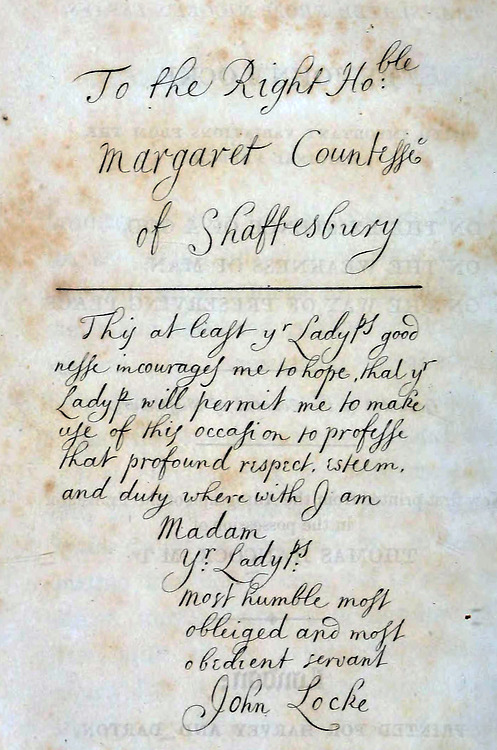 To the Right Ho:ble
Margaret Countesse
of Shaftesbury
This at least yr Ladyps good
nesse incourages me to hope, that yr
Ladyp will permit me to make
use of this occasion to professe
that profound respect, esteem,
and duty where with I am
Madam
Yr. Ladyps.
most humble most
obleiged and most
obedient servant
John Locke